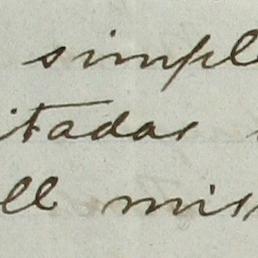 simpl
itadas
ell mis